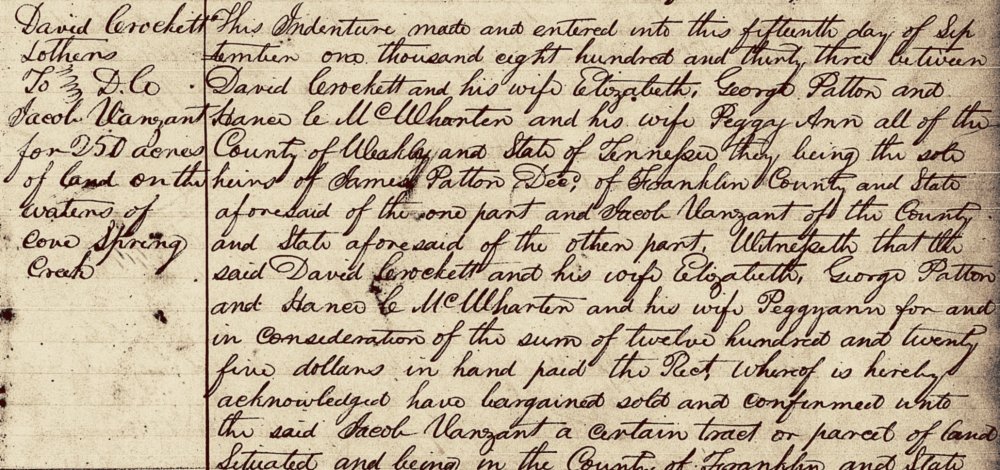 David Crockett
& others
To D. C
Jacob Vanzant
for 250 acres
of land on the
waters of
Cove Spring
Creek
This Indenture made and entered into this fifteenth day of Sep
tember one thousand eight hundred and thirty three between
David Crockett and his wife Elizabeth, George Patton and
Hance C McWharten and his wife Peggy Ann all of the
County of Weakly and State of Tennessee they being the sole
heirs of James Patton Decd. of Franklin County and State
aforesaid of the one part and Jacob Vanzant of the County
and State aforesaid of the other part, Witnesseth that the
said David Crockett and his wife Elizabeth, George Patton
and Hance C McWharten and his wife Peggyann for and
in consideration of the sum of twelve hundred and twenty
five dollars in hand paid the Rect, whereof is hereby
acknowledged have bargained sold and confirmed unto
the said Jacob Vanzant a certain tract or parcel of land
Situated and being in the County of Franklin and State